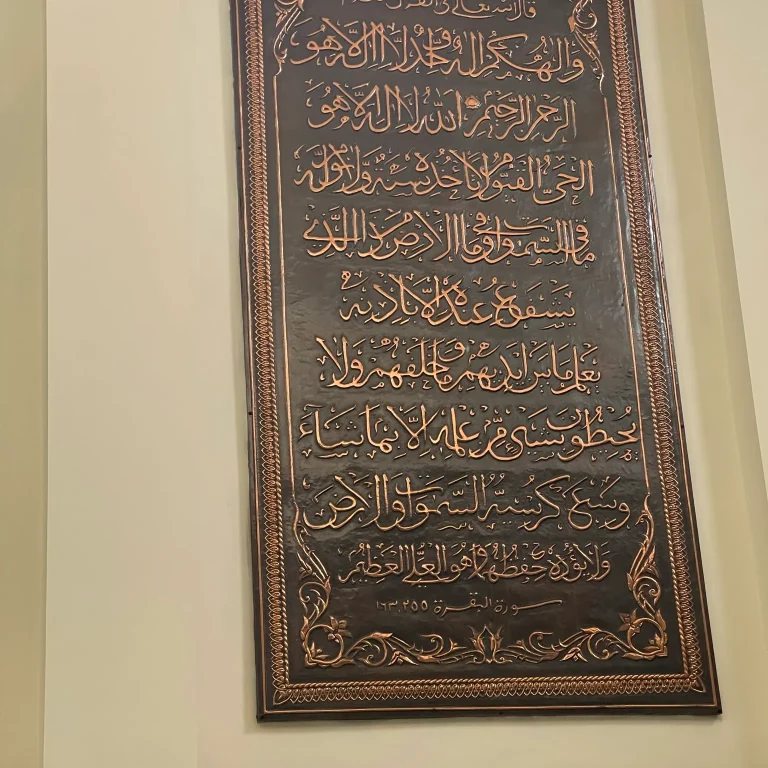 قال الله تعالى في القرآن
وإلهكم إله واحد لا إله إلا هو
الرحمن الرحيم الله لا إله إلا هو
الحي القيوم لا تأخذه سنة ولا نوم له
ما في السموات وما في الأرض من ذا الذي
يشفع عنده إلا بإذنه
يعلم ما بين أيديهم وما خلفهم ولا
يحيطون بشيء من علمه إلا بما شاء
وسع كرسيه السموات والأرض
ولا يؤده حفظهما وهو العلي العظيم
سورة البقرة ١٦٣،٢٥٥